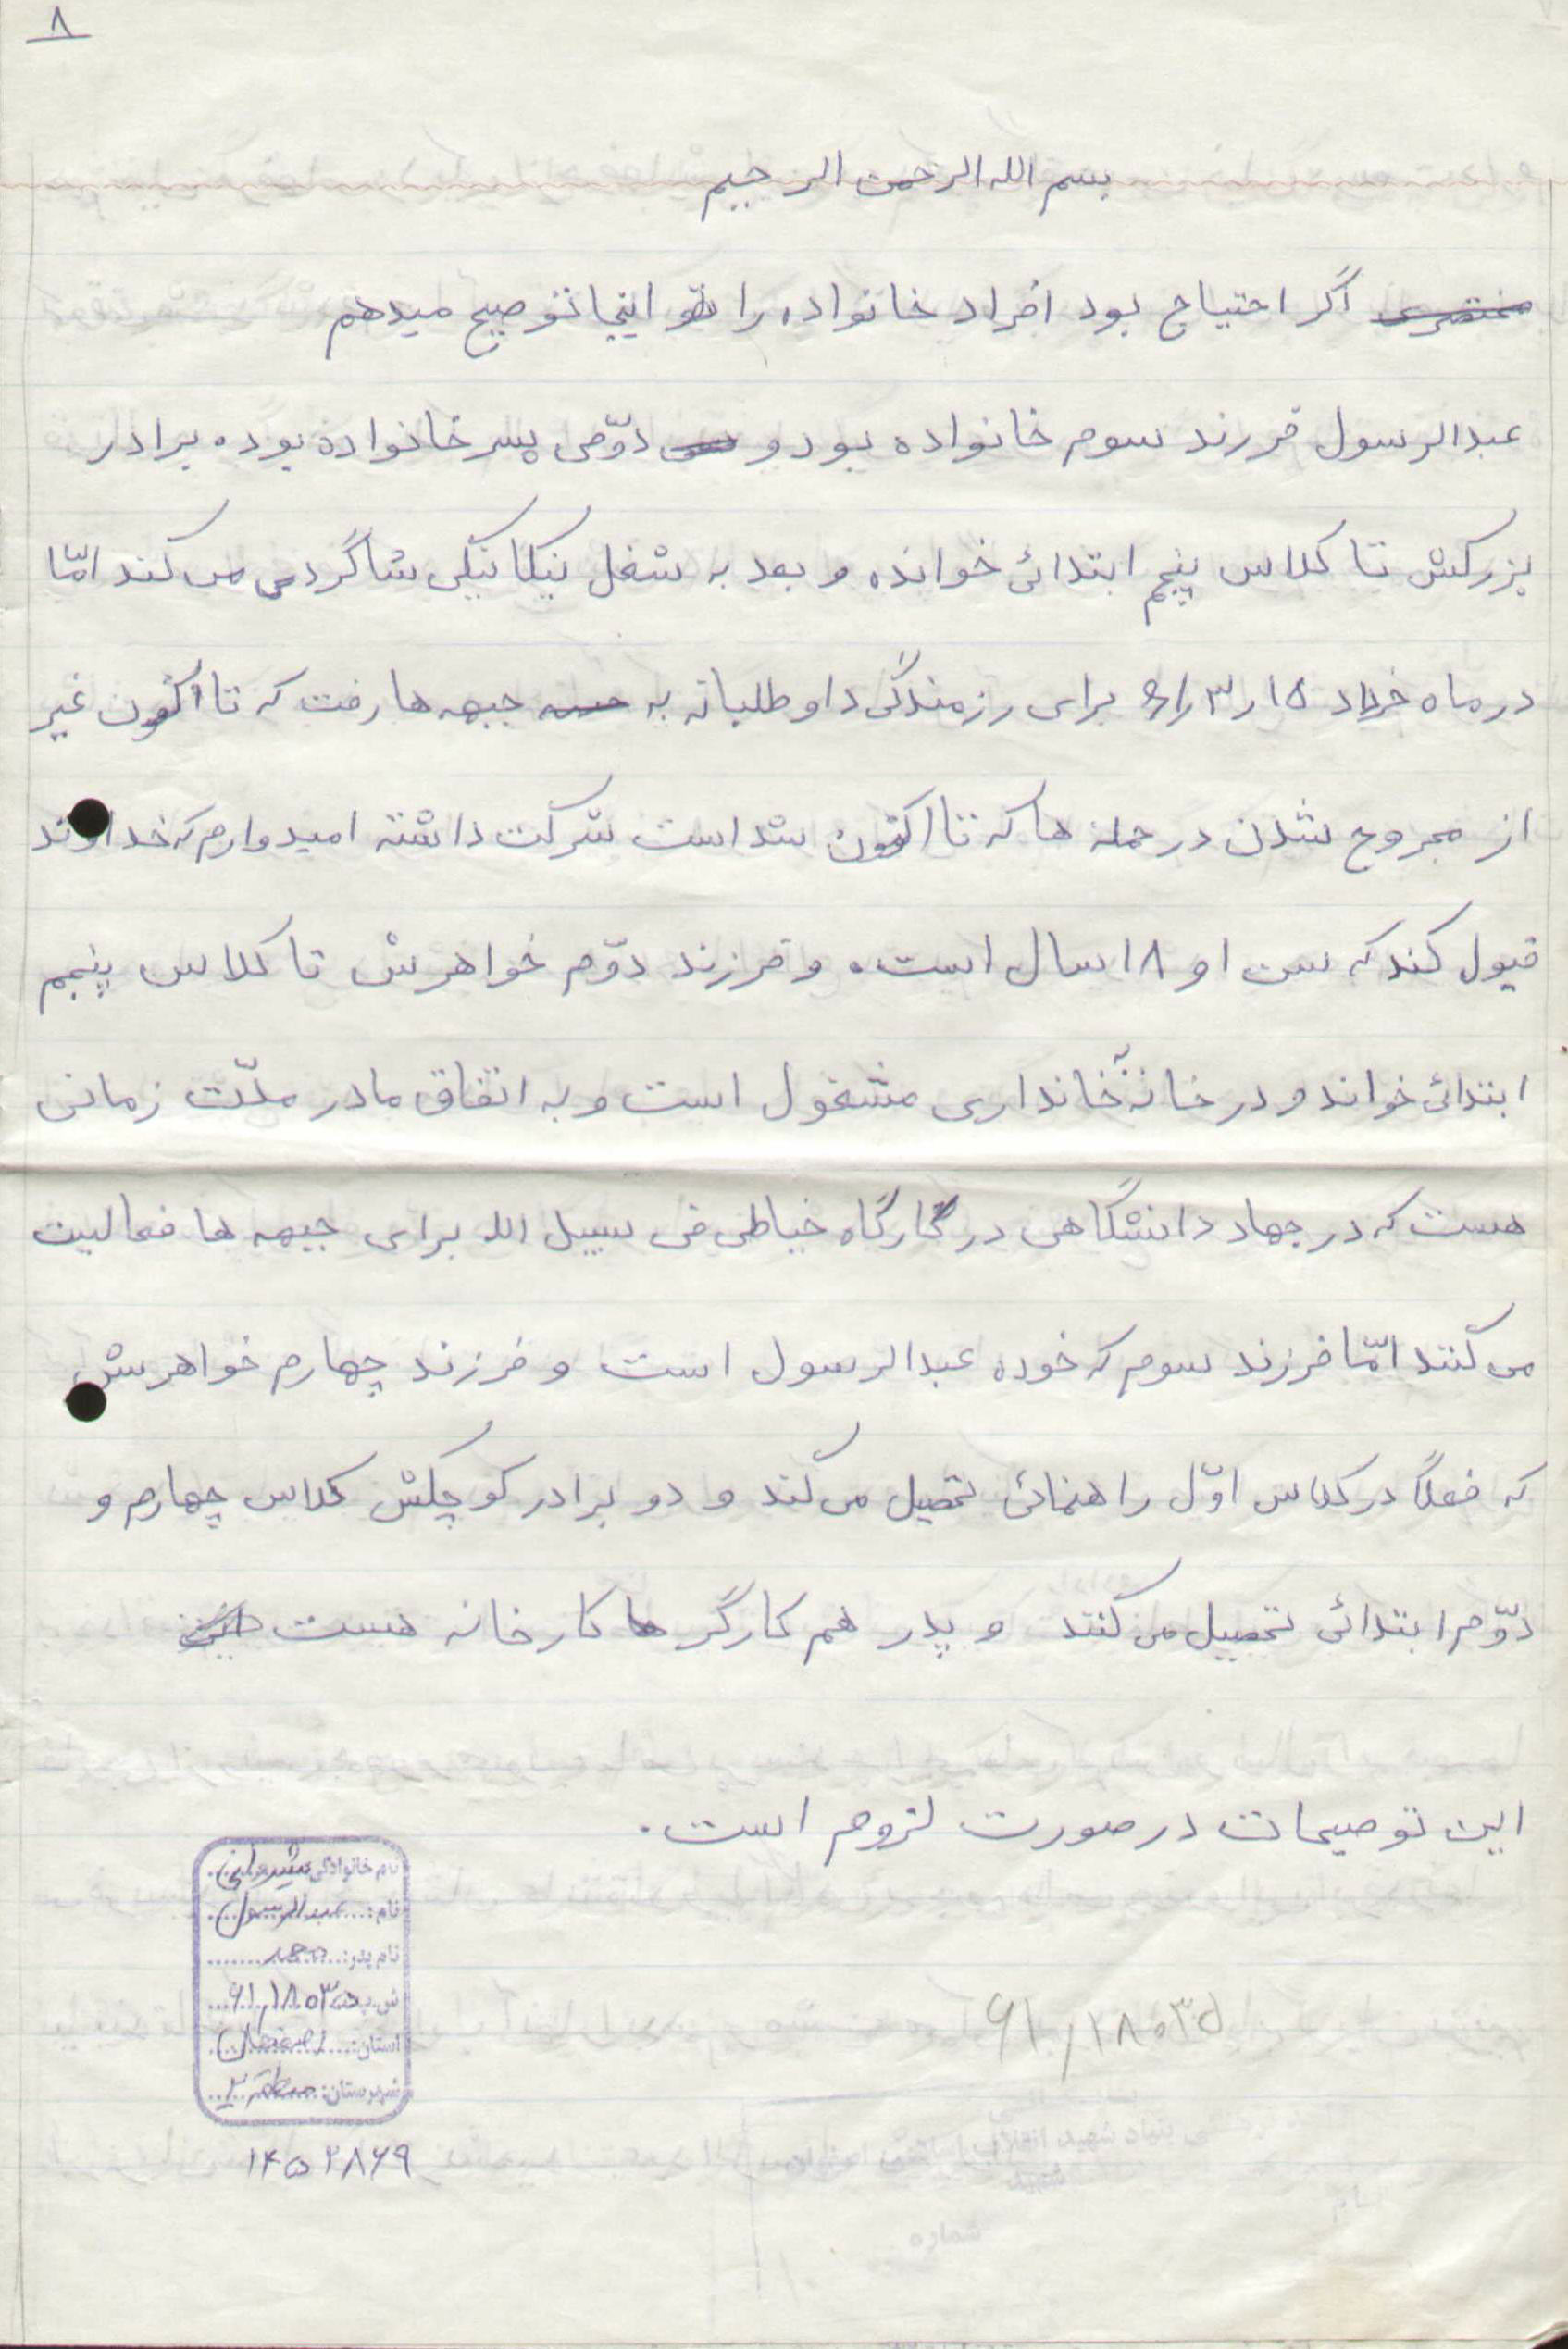 ۸
بسم الله الرحمن الرحیم
اگر احتیاج بود افراد خانواده را تو اینجا توصیح میدهم
عبدالرسول فررند سوم خانواده بود و دوّمی پسر خانواده بوده برادر
بزرکش تا کلاس پنجم ابتدائی خوانده و بعد به شغل نیکانیکی شاگردی می کند امّا
در ماه خرداد ۶۱/۳/۱۵ برای رزمندگی داوطلبانه به جبهه ها رفت که تا اکنون غیر
از مجروح شدن در حمله ها که تا اکنون شد است شرکت داشته امیدوارم که خداوند
قبول کند که سن او ۱۸ سال است. و فرزند دوّم خواهرش تا کلاس پنجم
ابتدائی خواند و در خانه به خانداری مشغول است و به اتفاق مادر مدّت زمانی
هست که در جهاد دانشگاهی در کارگاه خیاطی فی سبیل الله برای جبهه ها فعالیت
می کنند امّا فرزند سوم که خوده عبدالرسول است و فرزند چهارم خواهرش
که فعلاً در کلاس اوّل راهنمائی تحصیل می کند و دو برادر کوچکش کلاس چهارم و
دوّم ابتدائی تحصیل می کنند و پدر هم کارگر کارخانه هست
این توصیحات در صورت لزوم است.
نام خانوادگی
نام: عبدالرسول
نام پدر:
ش.پ ۶۱/۱۸۰۳۵
استان: اصفهان
شهرستان:
۶۱/۱۸۰۳۵
۱۴۵۲۸۶۹